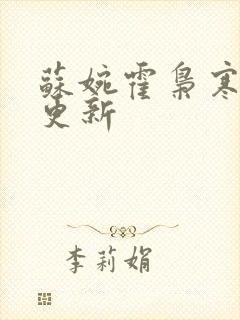 蘇婉霍梟寒
更新
李莉娟